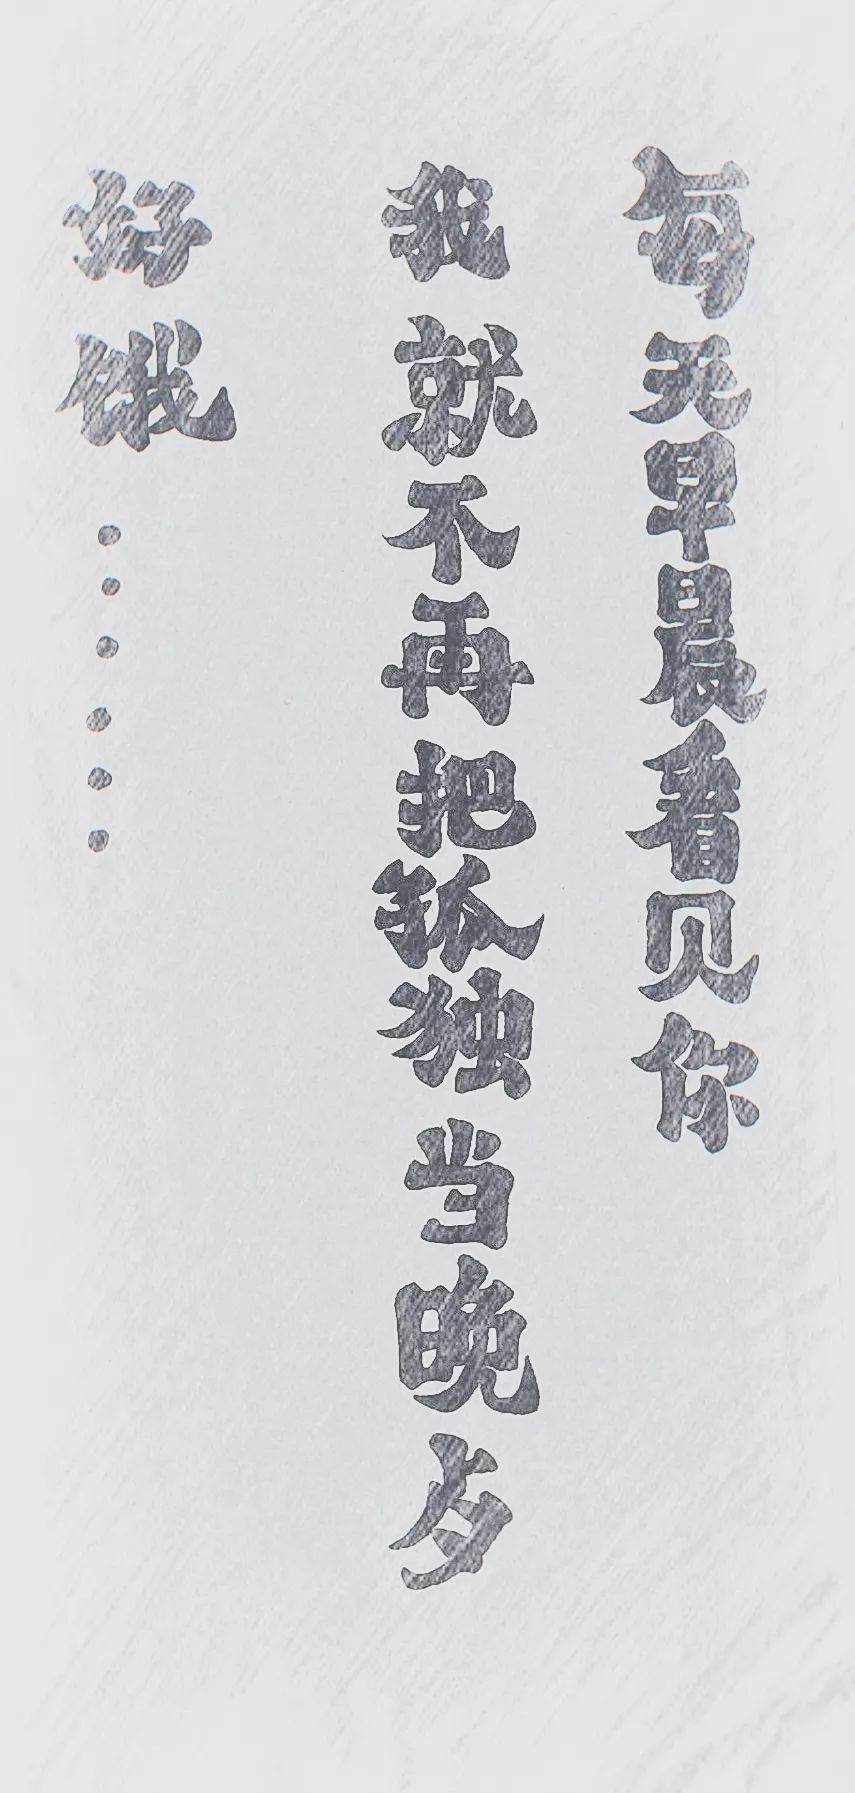 每天早晨看贝你
我就不再把孤独当晚夕
好饿......